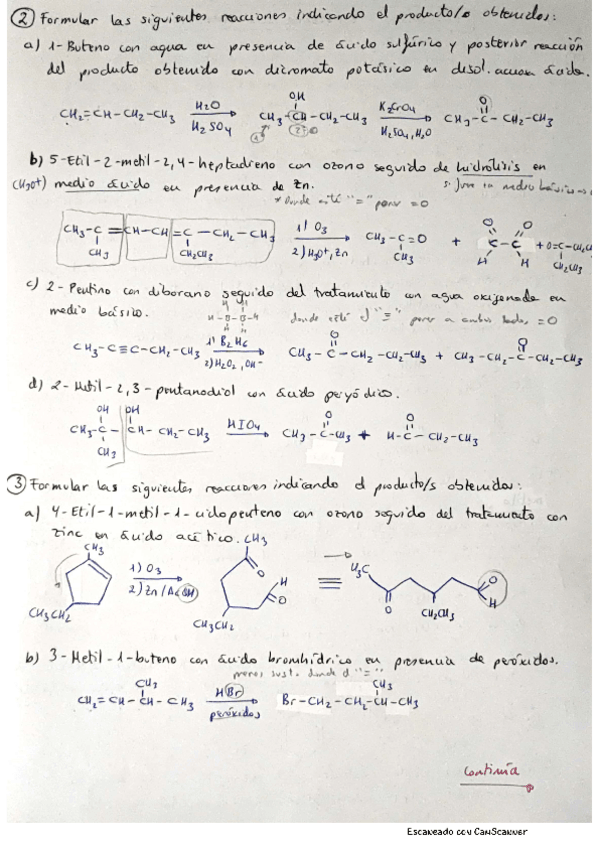 ② Formular las siguientes reacciones indicando el producto/s obtenidos:
a) 1-Buteno con agua en presencia de ácido sulfúrico y posterior reacción
del producto obtenido con dicromato potásico en disol. acuosa ácida.
CH₂=CH-CH₂-CH₃ H₂O H₂SO₄ CH₃-CH-CH₂-CH₃ OH K₂CrO₄ H₂SO₄, H₂O CH₃-C-CH₂-CH₃ O
b) 5-Etil-2-metil-2,4-heptadieno con ozono seguido de hidrólisis en
(H₃O+) medio ácido en presencia de Zn. si fuera en medio básico
* Donde esté "=" poner =O
CH₃-C=CH-CH=C-CH₂-CH₃ CH₃ CH₂CH₃ 1) O₃ 2) H₃O⁺, Zn CH₃-C=O CH₃ + O O C-C H H + O=C-CH₂ CH₂CH₃
c) 2-Pentino con diborano seguido del tratamiento con agua oxigenada en
medio básico. H-B-B-H H H H H donde esté el "≡" poner a ambos lados =O
CH₃-C≡C-CH₂-CH₃ 1) B₂H₆ 2) H₂O₂, OH⁻ CH₃-C-CH₂-CH₂-CH₃ O + CH₃-CH₂-C-CH₂-CH₃ O
d) 2-Metil-2,3-pentanodiol con ácido peryódico.
CH₃-C-CH-CH₂-CH₃ OH OH CH₃ HIO₄ CH₃-C-CH₃ O + H-C-CH₂-CH₃ O
③ Formular las siguientes reacciones indicando el producto/s obtenidos:
a) 4-Etil-1-metil-1-ciclopenteno con ozono seguido del tratamiento con
zinc en ácido acético.
CH₃ CH₃CH₂ 1) O₃ 2) Zn/AcOH CH₃ O H O CH₃CH₂ ≡ H₃C O CH₂CH₃ O H
b) 3-Metil-1-buteno con ácido bromhídrico en presencia de peróxidos.
menos sust. donde el "="
CH₂=CH-CH-CH₃ CH₃ HBr peróxidos Br-CH₂-CH₂-CH-CH₃ CH₃
Continúa
Escaneado con CamScanner